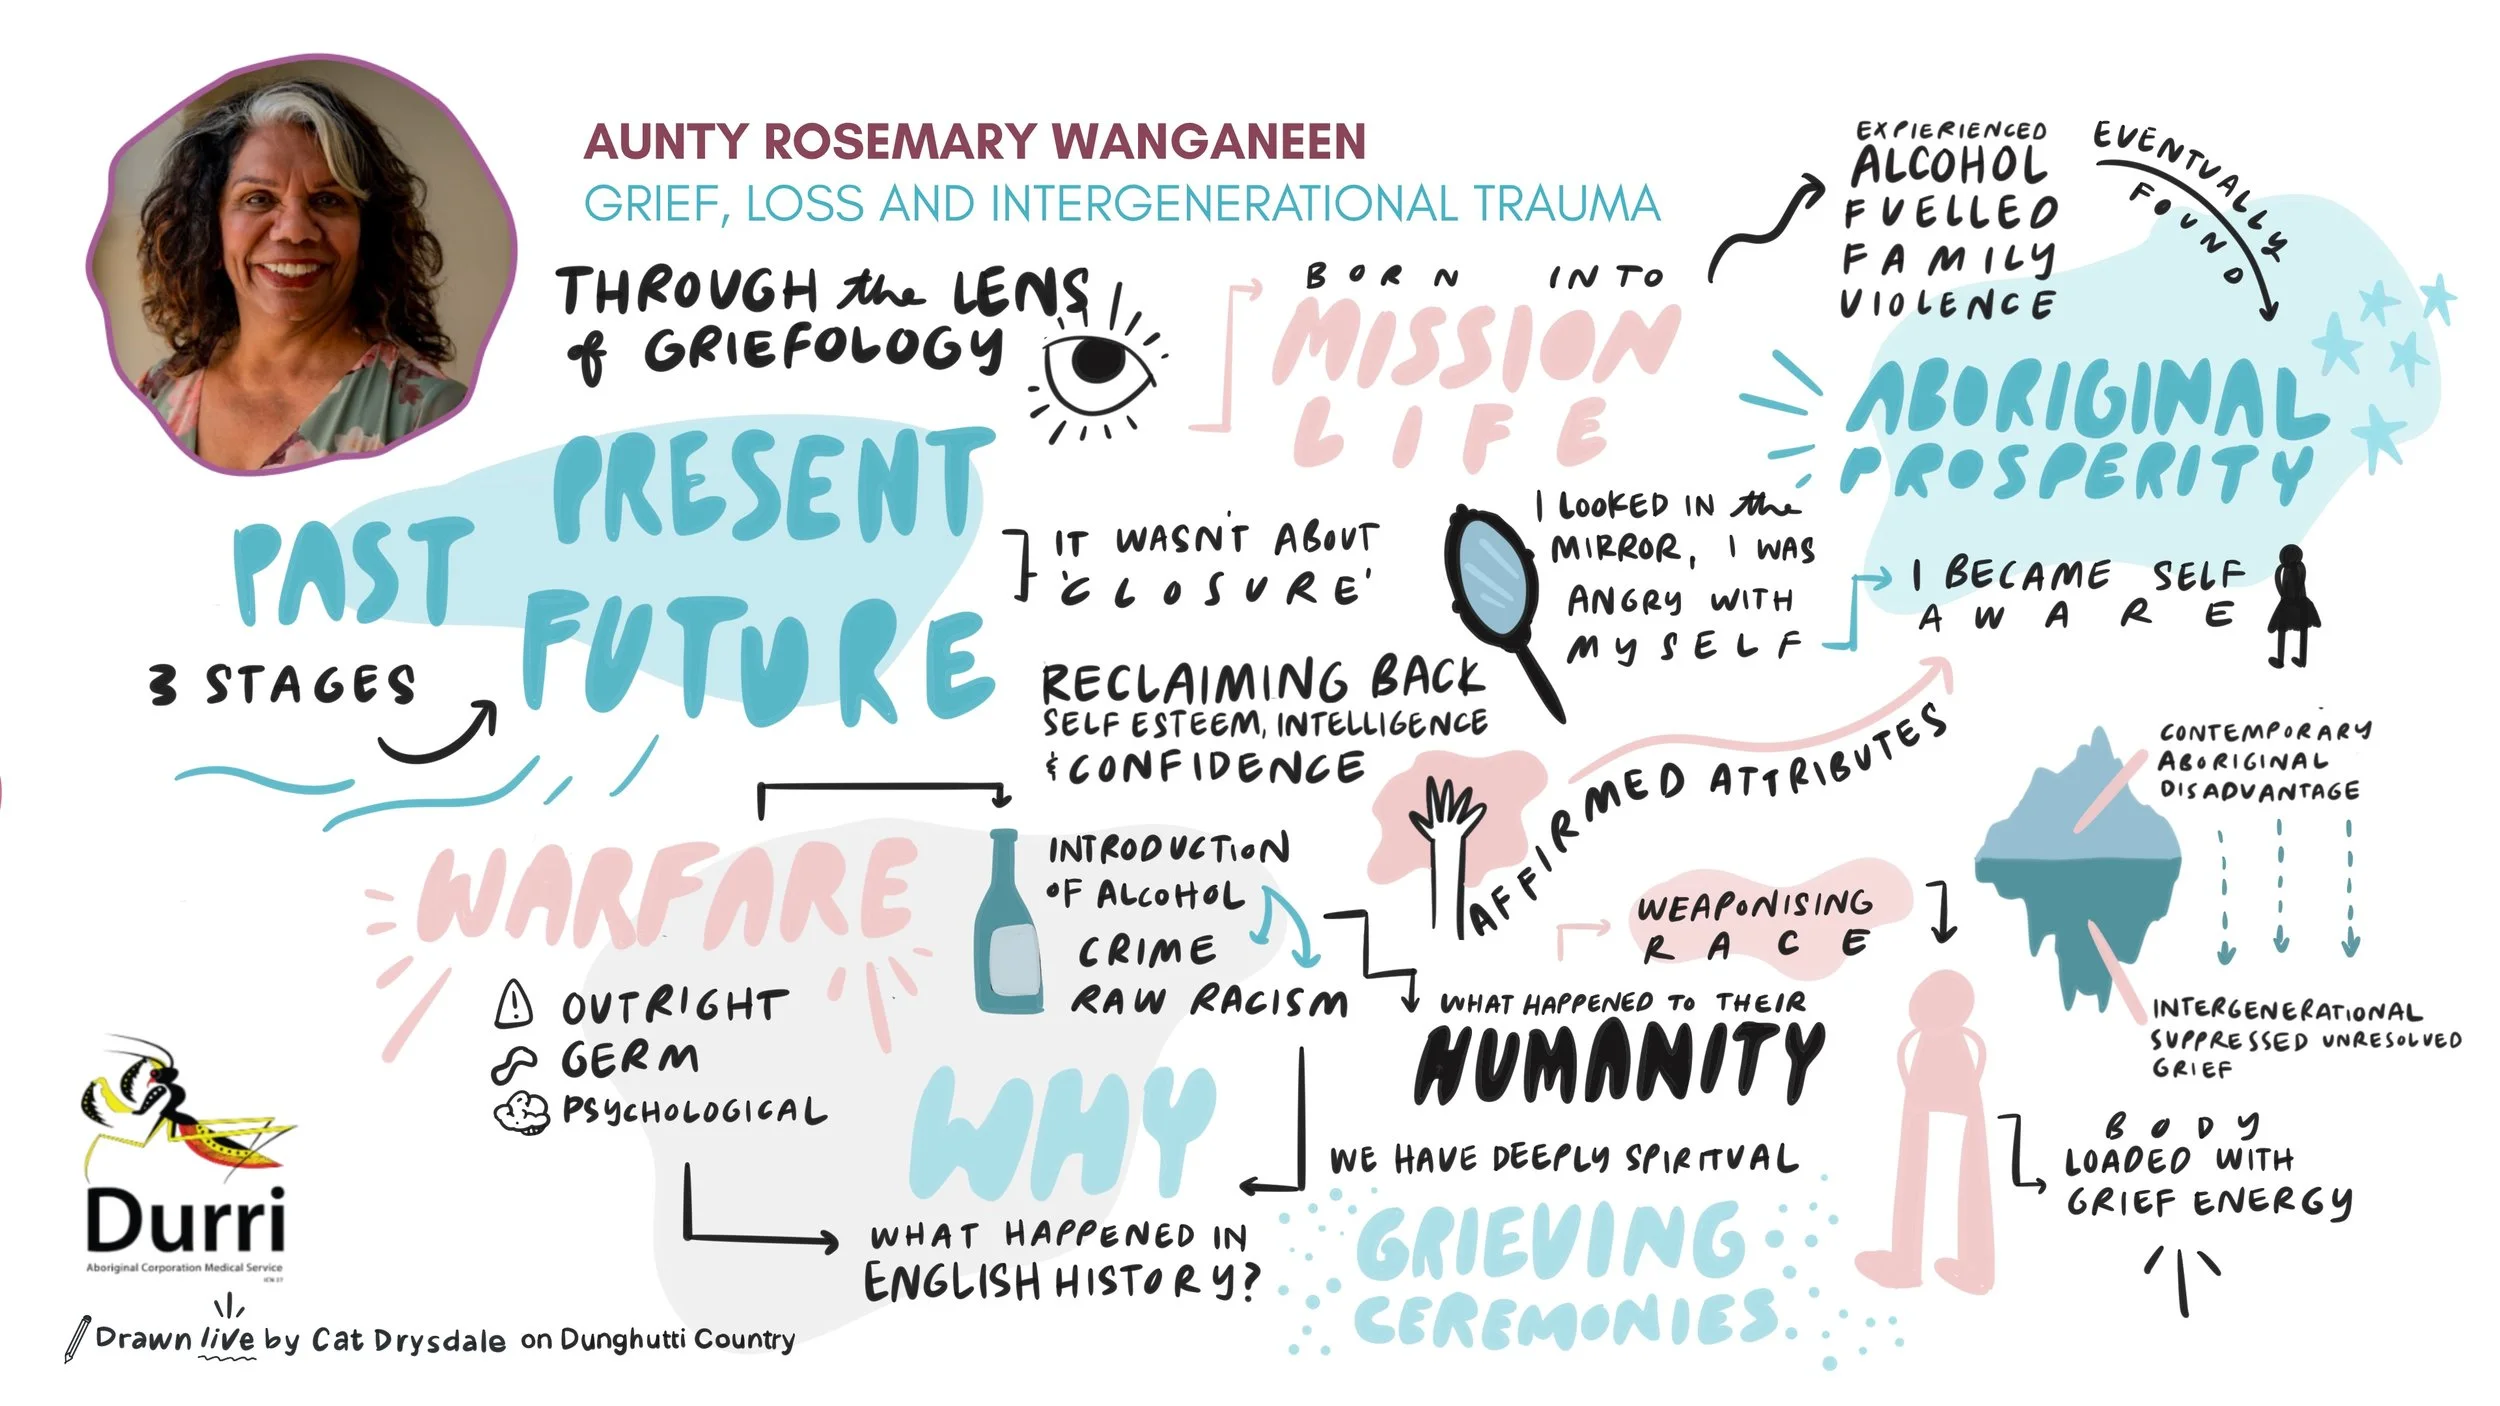 AUNTY ROSEMARY WANGANEEN
GRIEF, LOSS AND INTERGENERATIONAL TRAUMA
THROUGH the LENS
of GRIEFOLOGY
BORN INTO
MISSION
LIFE
EXPIERIENCED
ALCOHOL
FUELLED
FAMILY
VIOLENCE
EVENTUALLY
FOUND
ABORIGINAL
PROSPERITY
PAST
PRESENT
FUTURE
3 STAGES
IT WASN'T ABOUT
'CLOSURE'
I LOOKED IN the
MIRROR, I WAS
ANGRY WITH
MYSELF
I BECAME SELF
AWARE
RECLAIMING BACK
SELF ESTEEM, INTELLIGENCE
& CONFIDENCE
AFFIRMED ATTRIBUTES
CONTEMPORARY
ABORIGINAL
DISADVANTAGE
INTERGENERATIONAL
SUPPRESSED UNRESOLVED
GRIEF
WARFARE
! OUTRIGHT
GERM
PSYCHOLOGICAL
INTRODUCTION
OF ALCOHOL
CRIME
RAW RACISM
WEAPONISING
RACE
WHAT HAPPENED TO THEIR
HUMANITY
WHY
WHAT HAPPENED IN
ENGLISH HISTORY?
WE HAVE DEEPLY SPIRITUAL
GRIEVING
CEREMONIES
BODY
LOADED WITH
GRIEF ENERGY
Durri
Aboriginal Corporation Medical Service
ICN 37
Drawn live by Cat Drysdale on Dunghutti Country